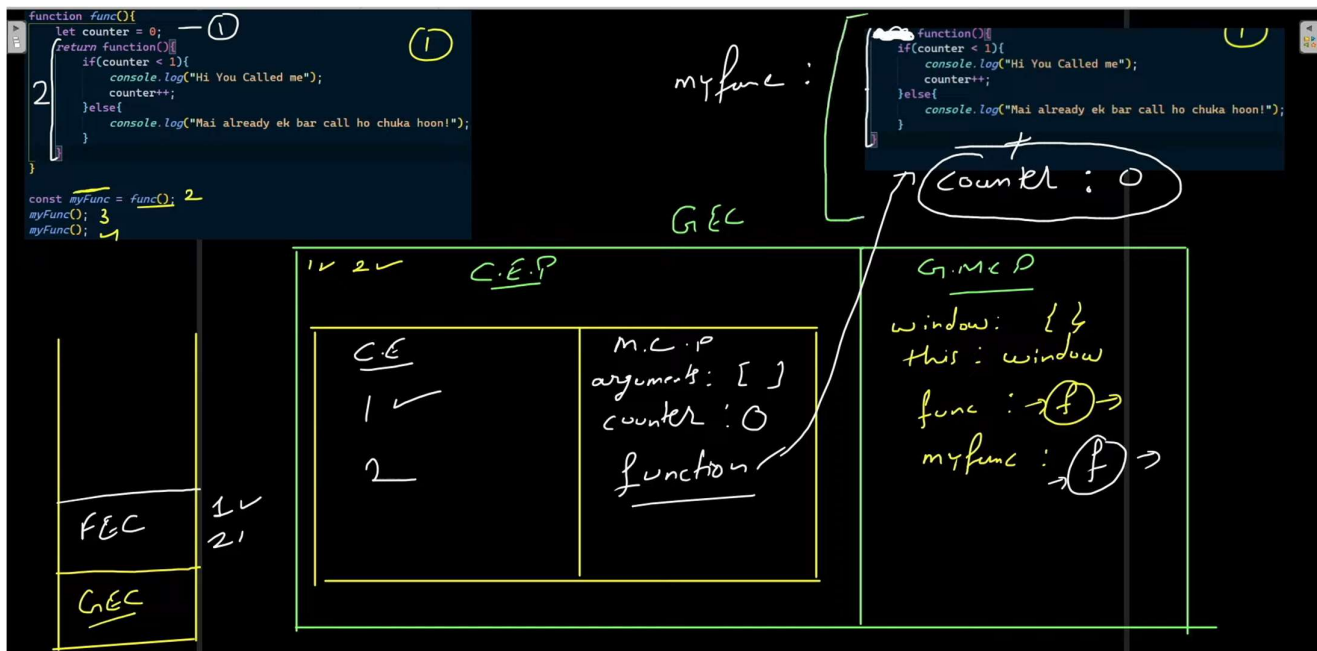 function func(){
let counter = 0; — 1
1
return function(){
2
if(counter < 1){
console.log("Hi You Called me");
counter++;
}else{
console.log("Mai already ek bar call ho chuka hoon!");
}
}
}
const myFunc = func(); 2
myFunc(); 3
myFunc(); 4
myfunc :
function(){
if(counter < 1){
console.log("Hi You Called me");
counter++;
}else{
console.log("Mai already ek bar call ho chuka hoon!");
}
}
counter : 0
GEC
1✓ 2✓
C.E.P
G.M.C P
window: { }
this : window
func : → f →
myfunc : → f →
C.E
1 ✓
2
M.C.P
arguments: [ ]
counter : 0
function
FEC
1✓
2
GEC